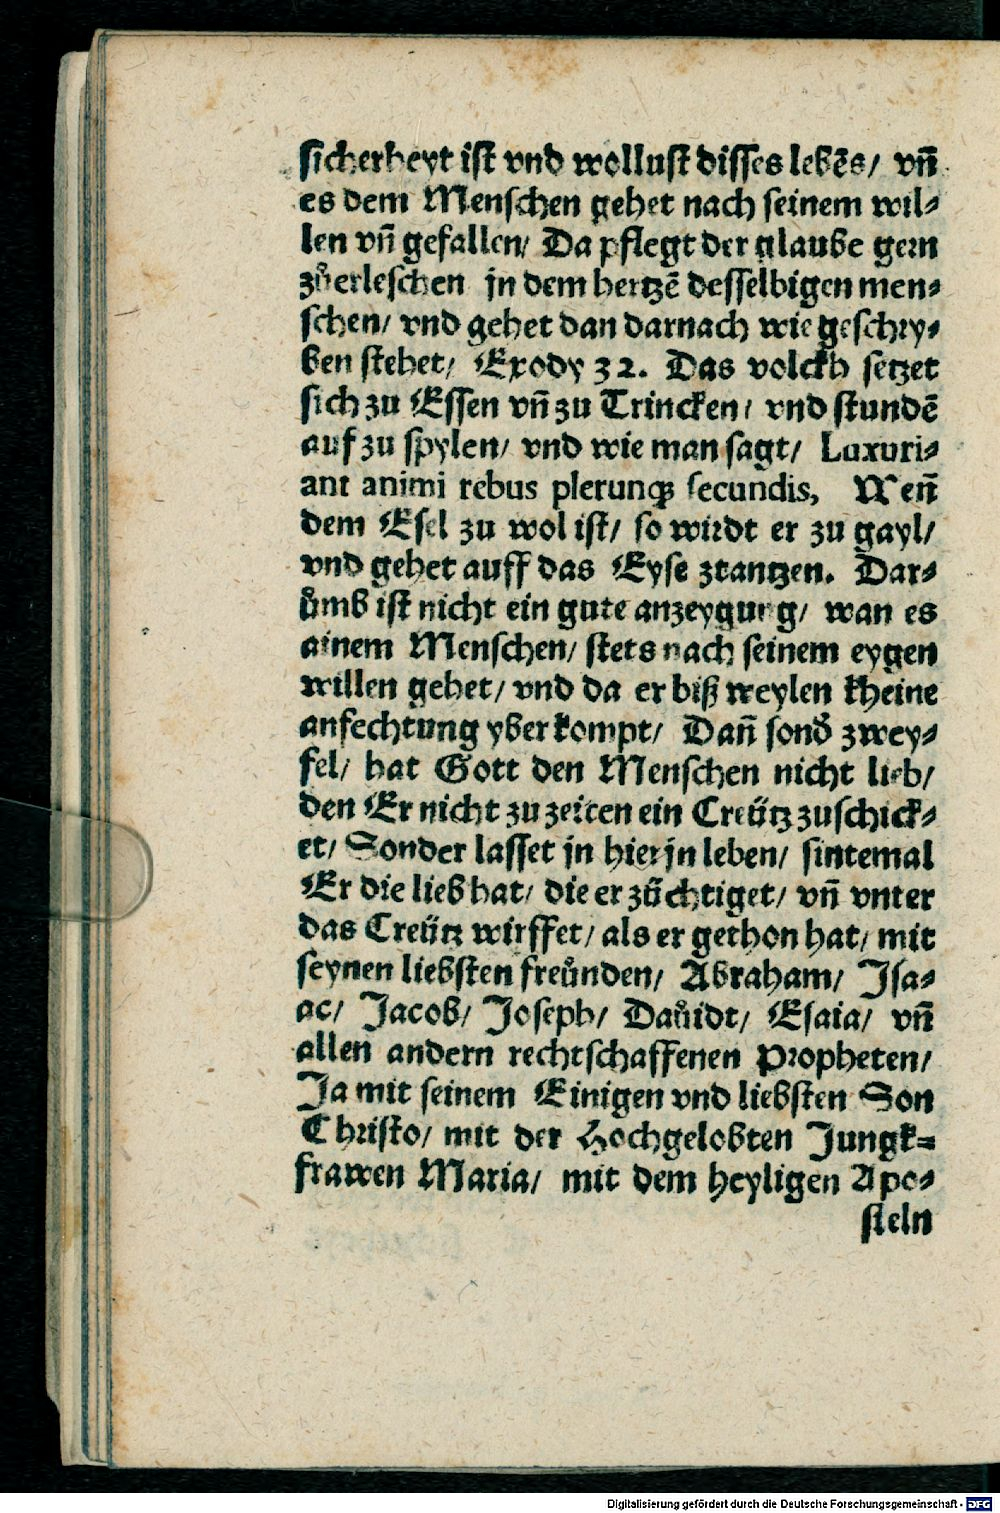 sicherheyt ist vnd wollust disses lebēs/ vñ
es dem Menschen gehet nach seinem wil⸗
len vñ gefallen/ Da pflegt der glaube gern
zůerleschen jn dem hertzē desselbigen men⸗
schen/ vnd gehet dan darnach wie geschry⸗
ben stehet/ Exody 32. Das volckh setzet
sich zu Essen vñ zu Trincken/ vnd stundē
auf zu spylen/ vnd wie man sagt/ Luxuri⸗
ant animi rebus plerunqꝫ secundis, Weñ
dem Esel zu wol ist/ so wirdt er zu gayl/
vnd gehet auff das Eyse ztantzen. Dar⸗
ůmb ist nicht ein gute anzeygung/ wan es
ainem Menschen/ stets nach seinem eygen
willen gehet/ vnd da er biß weylen kheine
anfechtung yberkompt/ Dañ sonđ zwey⸗
fel/ hat Gott den Menschen nicht lieb/
den Er nicht zu zeiten ein Creütz zuschick⸗
et/ Sonder lasset jn hierjn leben/ sintemal
Er die lieb hat/ die er züchtiget/ vñ vnter
das Creütz wirffet/ als er gethon hat/ mit
seynen liebsten freůnden/ Abraham/ Isa⸗
ac/ Jacob/ Joseph/ Daůidt/ Esaia/ vñ
allen andern rechtschaffenen Propheten/
Ja mit seinem Einigen vnd liebsten Son
Christo/ mit der Hochgelobten Jungk⸗
frawen Maria/ mit dem heyligen Apo⸗
steln
Digitalisierung gefördert durch die Deutsche Forschungsgemeinschaft - DFG